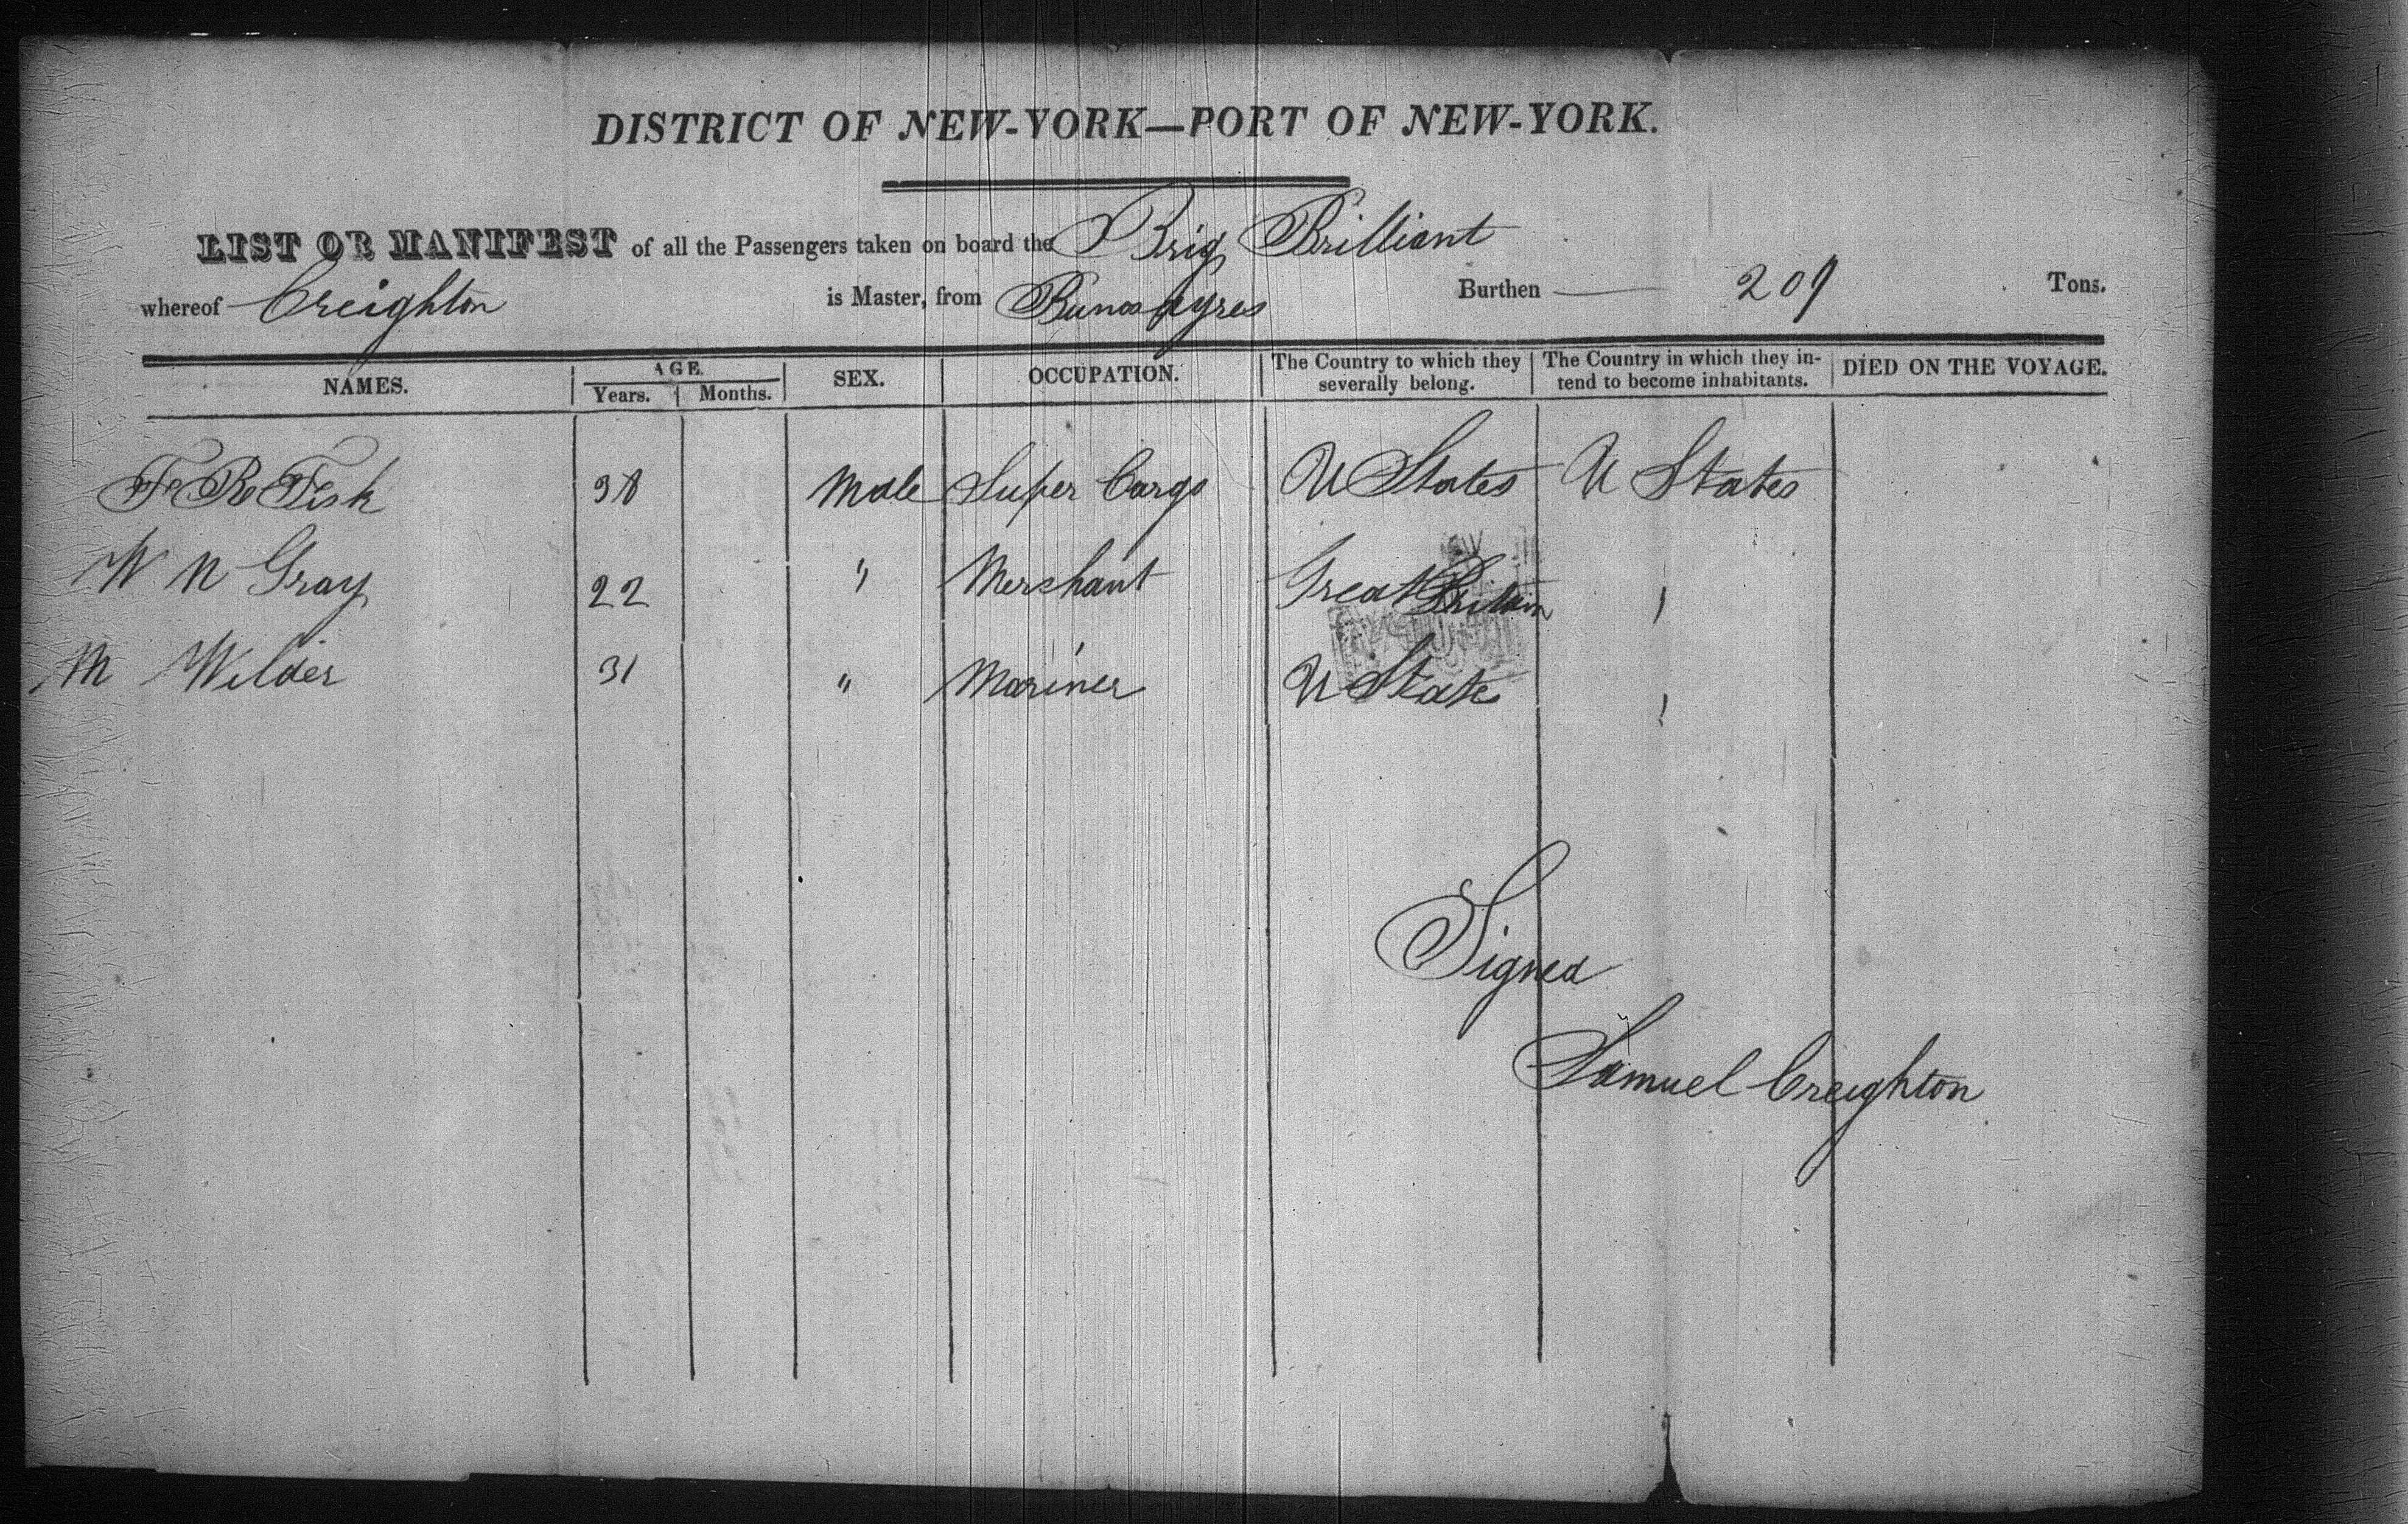 DISTRICT OF NEW-YORK—PORT OF NEW-YORK.
LIST OR MANIFEST of all the Passengers taken on board the Brig Brilliant
whereof Creighton is Master, from Bunos Ayres Burthen 209 Tons.
NAMES. AGE. Years. Months. SEX. OCCUPATION. The Country to which they severally belong. The Country in which they intend to become inhabitants. DIED ON THE VOYAGE.
F R Fish 38 Male Super Cargo U States U States
W N Gray 22 " Merchant Great Britain "
M Wilder 31 " Mariner U State "
Signed
Samuel Creighton